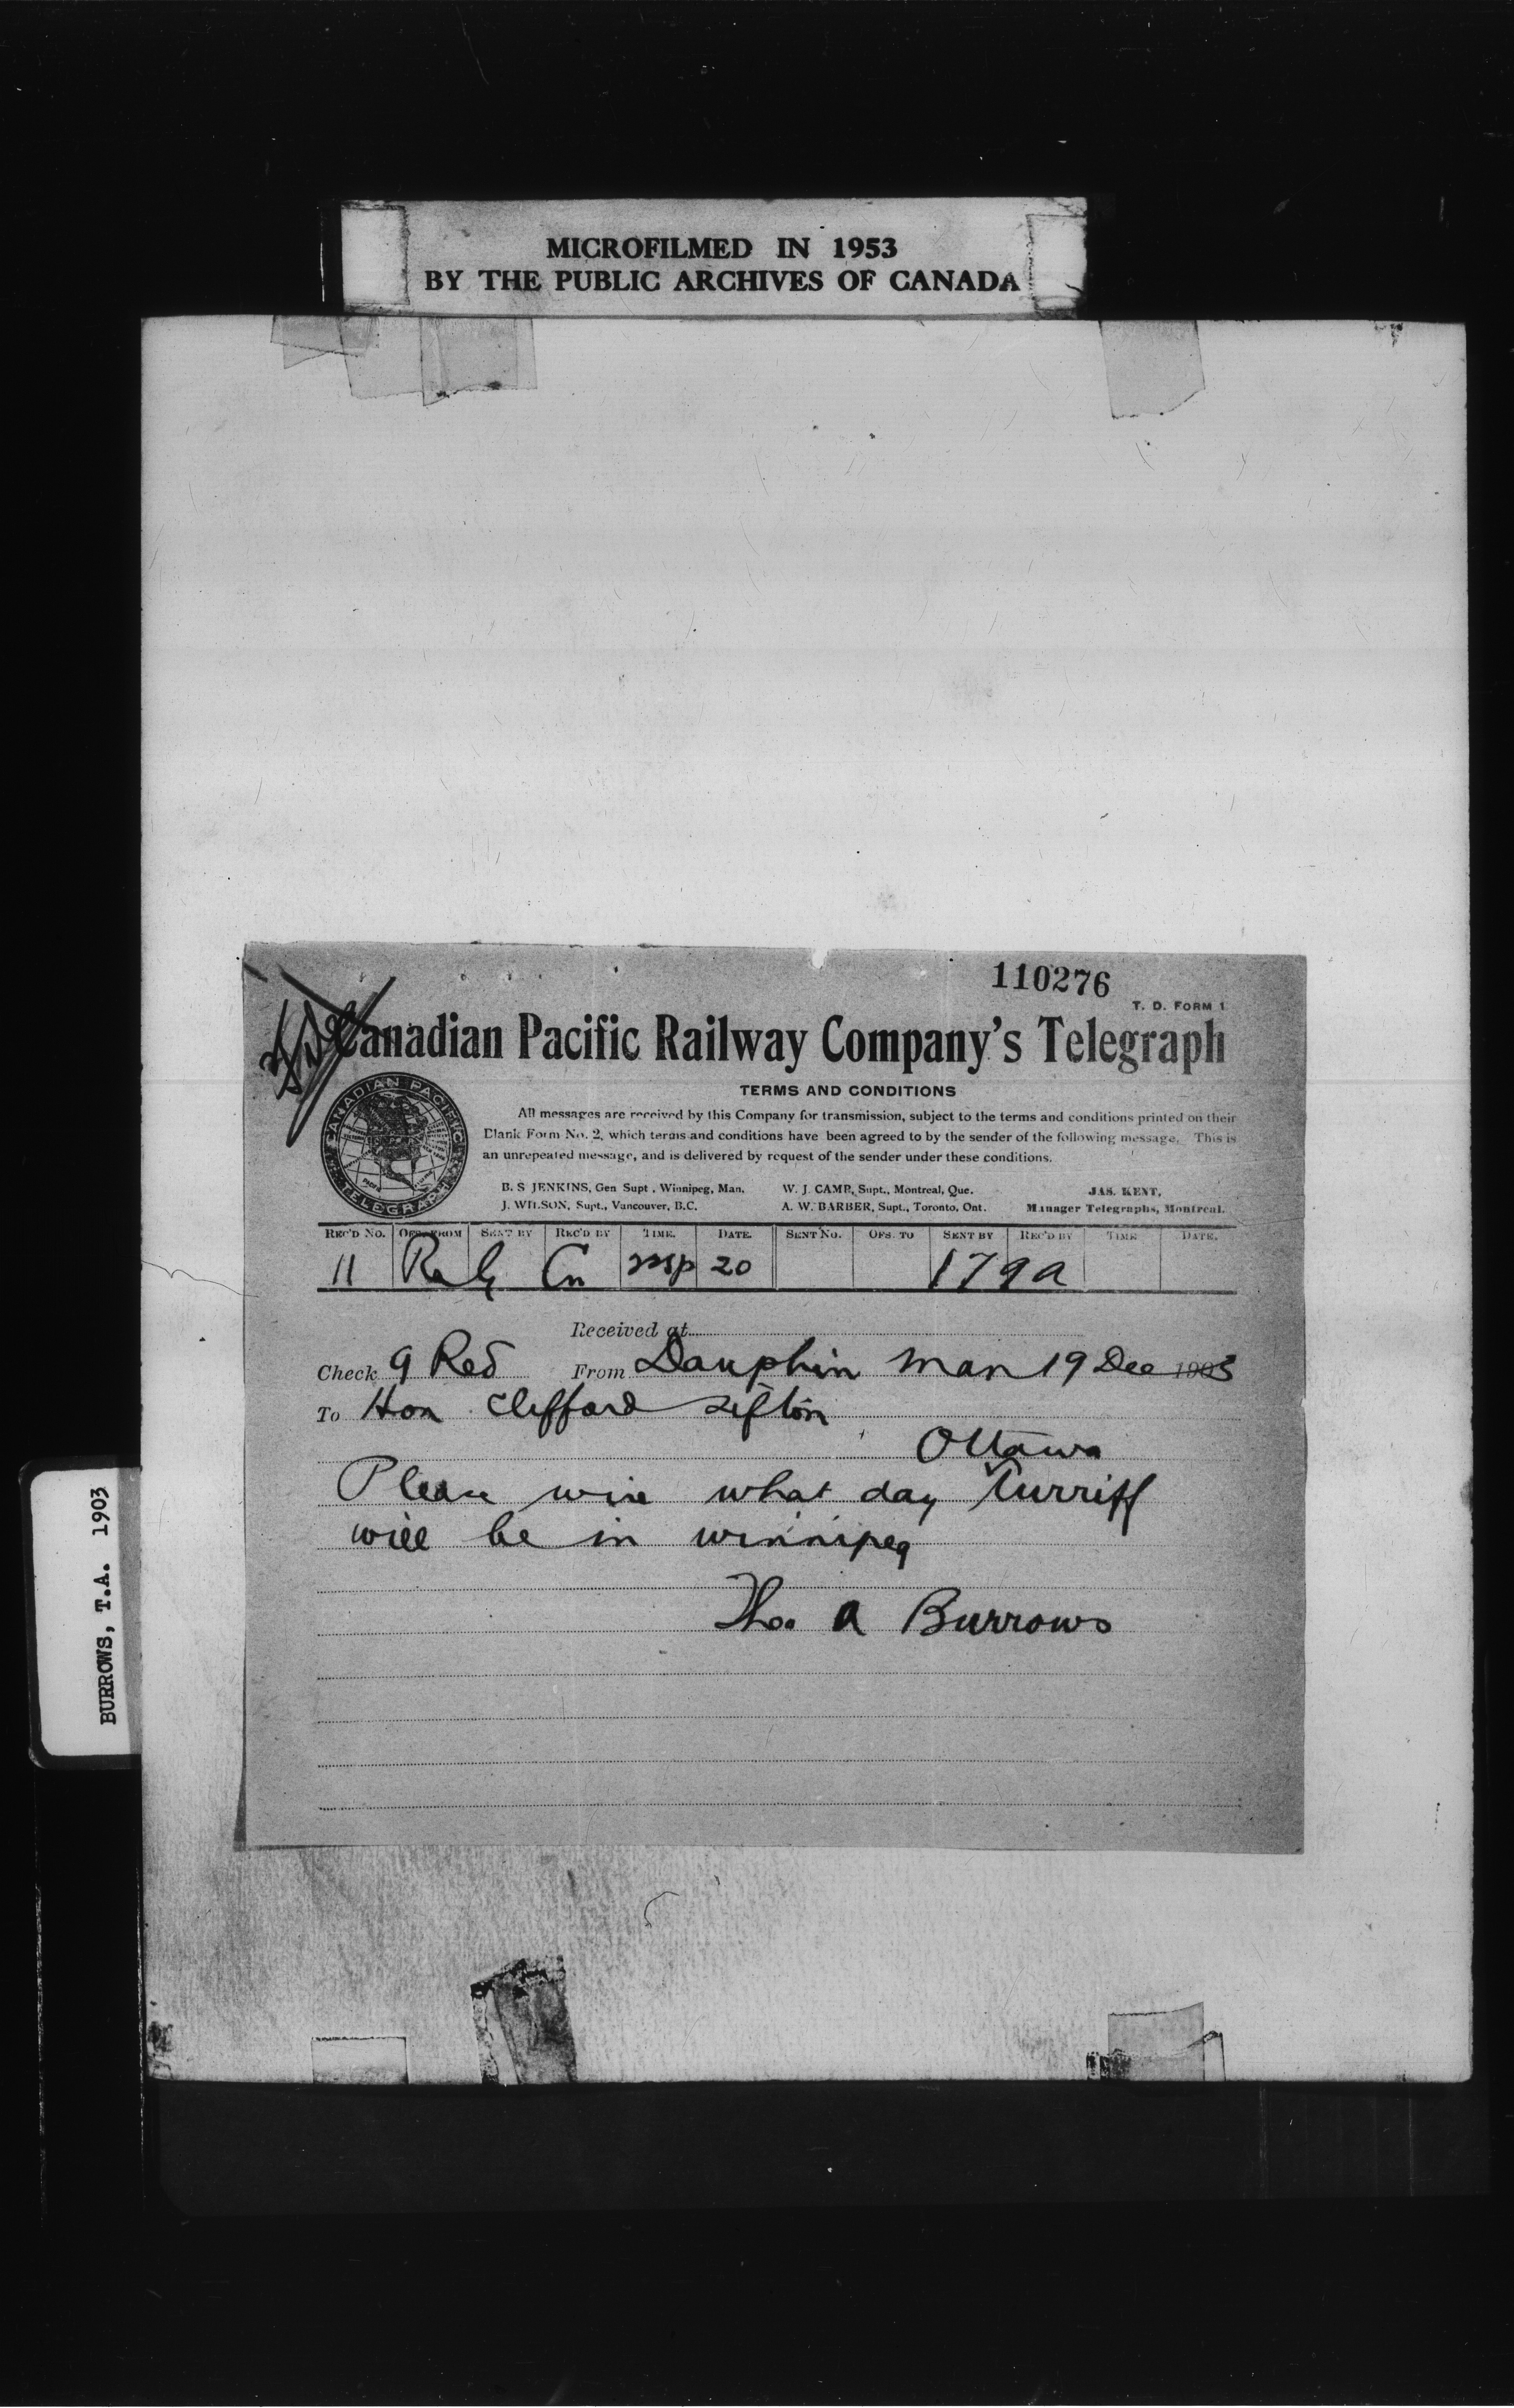 MICROFILMED IN 1953
BY THE PUBLIC ARCHIVES OF CANADA
BURROWS, T.A. 1903
110276
T. D. FORM 1
Canadian Pacific Railway Company's Telegraph
TERMS AND CONDITIONS
All messages are received by this Company for transmission, subject to the terms and conditions printed on their
Blank Form No. 2, which terms and conditions have been agreed to by the sender of the following message. This is
an unrepeated message, and is delivered by request of the sender under these conditions.
CANADIAN PACIFIC
TELEGRAPH
B. S JENKINS, Gen Supt, Winnipeg, Man. W. J. CAMP, Supt., Montreal, Que. JAS. KENT,
J. WILSON, Supt., Vancouver, B.C. A. W. BARBER, Supt., Toronto, Ont. Manager Telegraphs, Montreal.
REC'D No. OFS. FROM SENT BY REC'D BY TIME. DATE. SENT No. OFS. TO SENT BY REC'D BY TIME DATE.
11 Cn 20 179a
Received at
Check 9 Red From Dauphin Man 19 Dec 1903
To Hon Clifford Sifton
Ottawa
Please wire what day Turriff
will be in winnipeg
Thos A Burrows